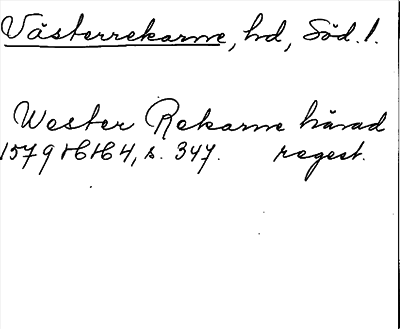 Västerrekarne, hd, Söd. l.
Wester Rekarne härad
1579 16/6 4, s. 347. regest.